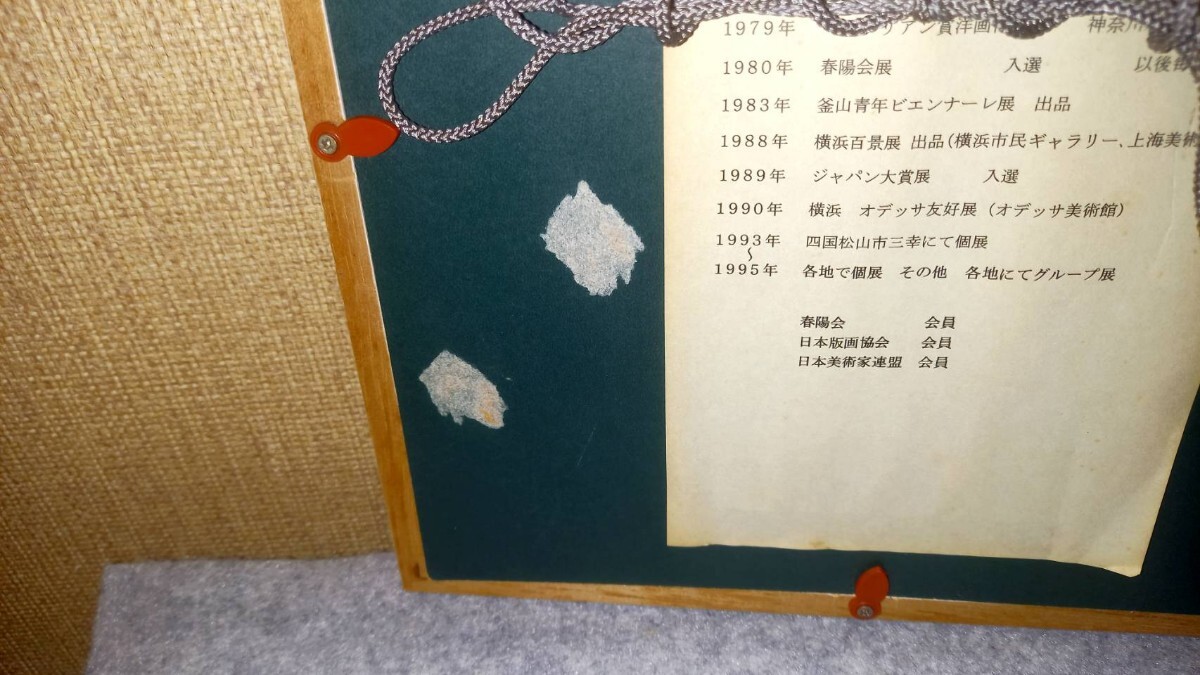 1979年 リアン賞洋画 神奈川
1980年 春陽会展 入選 以後毎
1983年 釜山青年ビエンナーレ展 出品
1988年 横浜百景展 出品(横浜市民ギャラリー、上海美術
1989年 ジャパン大賞展 入選
1990年 横浜 オデッサ友好展(オデッサ美術館)
1993年 四国松山市三幸にて個展
〜
1995年 各地で個展 その他 各地にてグループ展
春陽会 会員
日本版画協会 会員
日本美術家連盟 会員